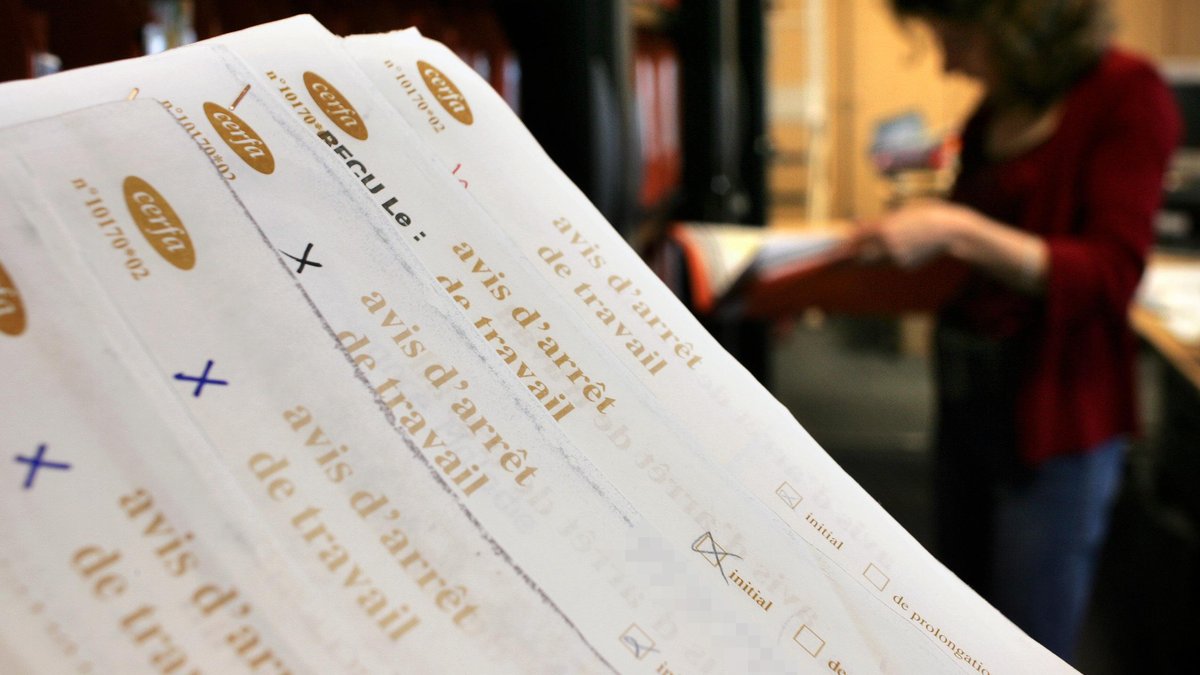 cerfa
n°10170*02
avis d'arrêt
de travail
initial
de prolongatio
cerfa
n°10170*02
REÇU Le :
avis d'arrêt
de travail
initial
de
cerfa
n°10170*02
avis d'arrêt
de travail
in
cerfa
n°10170*02
avis d'arrêt
de travail
avis d'arr
de tra